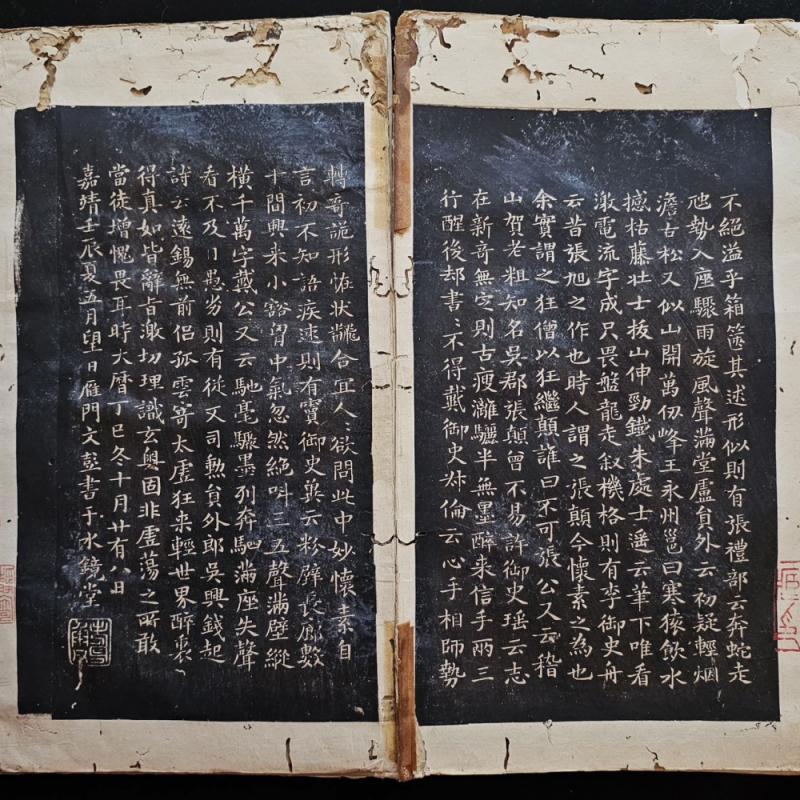 不絕溢乎箱篋其述形似則有張禮部云奔蛇走
虺勢入座驟雨旋風聲滿堂盧員外云初疑輕烟
澹古松又似山開萬仞峰王永州邕曰寒猿飲水
撼枯藤壯士拔山伸勁鐵朱處士遥云筆下唯看
激電流字成只畏盤龍走叙機格則有李御史舟
云昔張旭之作也時人謂之張顛今懷素之為也
余實謂之狂僧以狂繼顛誰曰不可張公又云稽
山賀老粗知名吳郡張顛曾不易許御史瑶云志
在新奇無定則古瘦灕驪半無墨醉来信手兩三
行醒後却書〻不得戴御史叔倫云心手相師勢
轉奇詭形恠狀飜合宜人〻欲問此中妙懷素自
言初不知語疾速則有竇御史冀云粉壁長廊數
十間興来小豁胷中氣忽然絕叫三五聲滿壁縱
橫千萬字戴公又云馳毫驟墨列奔駟滿座失聲
看不及目愚劣則有從父司勳員外郎吳興錢起
詩云遠錫無前侶孤雲寄太虛狂来輕世界醉裏
得真如皆辭旨激切理識玄奧固非虛蕩之所敢
當徒增愧畏耳時大曆丁巳冬十月廿有八日
嘉靖壬辰夏五月望日雁門文彭書于水鏡堂